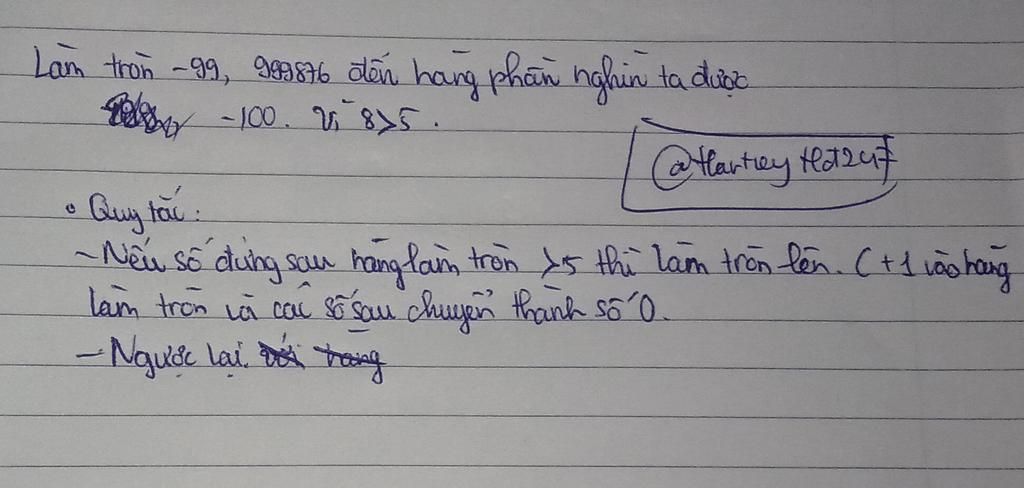 Làm tròn -99, 999876 đến hàng phần nghìn ta được
-100. Vì 8>5.
@Hartley Hot247
• Quy tắc:
- Nếu số đứng sau hàng làm tròn >5 thì làm tròn lên. (+1 vào hàng
làm tròn và các số sau chuyển thành số 0.
- Ngược lại.